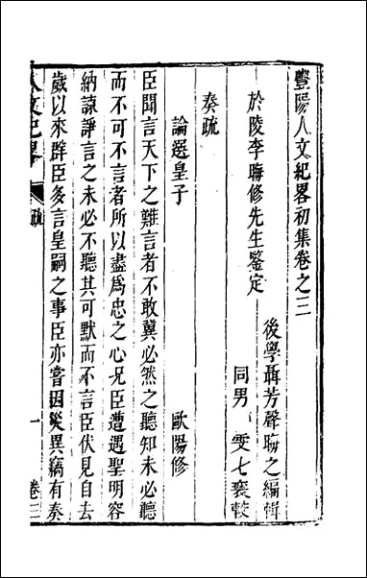 豐陽人文紀畧初集卷之三
於陵李𣈆修先生鉴定
後學聶芳聲晦之編輯
同男 雯七裒較
奏疏
論選皇子
歐陽修
臣聞言天下之難言者不敢冀必然之聽知未必聽
而不可不言者所以盡爲忠之心况臣遭遇聖明容
納諫諍言之未必不聽其可默而不言臣伏見自去
歲以來群臣多言皇嗣之事臣亦嘗因災異竊有奏
人文紀畧
一
卷三